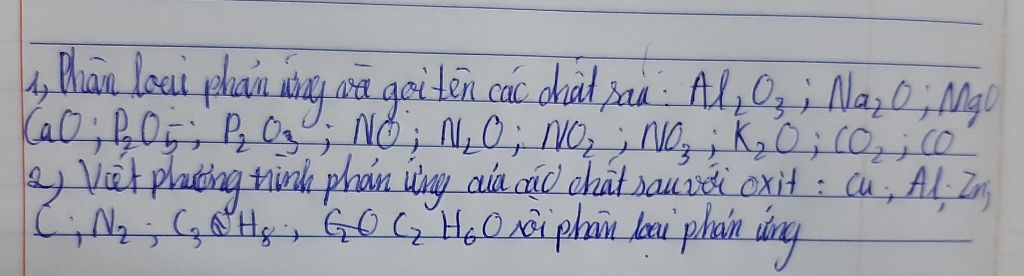 1, Phân loại phản ứng và gọi tên các chất sau: Al2O3; Na2O; MgO
CaO; P2O5; P2O3; NO; N2O; NO2; NO3; K2O; CO2; CO
2) Viết phương trình phản ứng của các chất sau với oxit: Cu, Al; Zn,
C; N2; C3H8, C2H6O rồi phân loại phản ứng